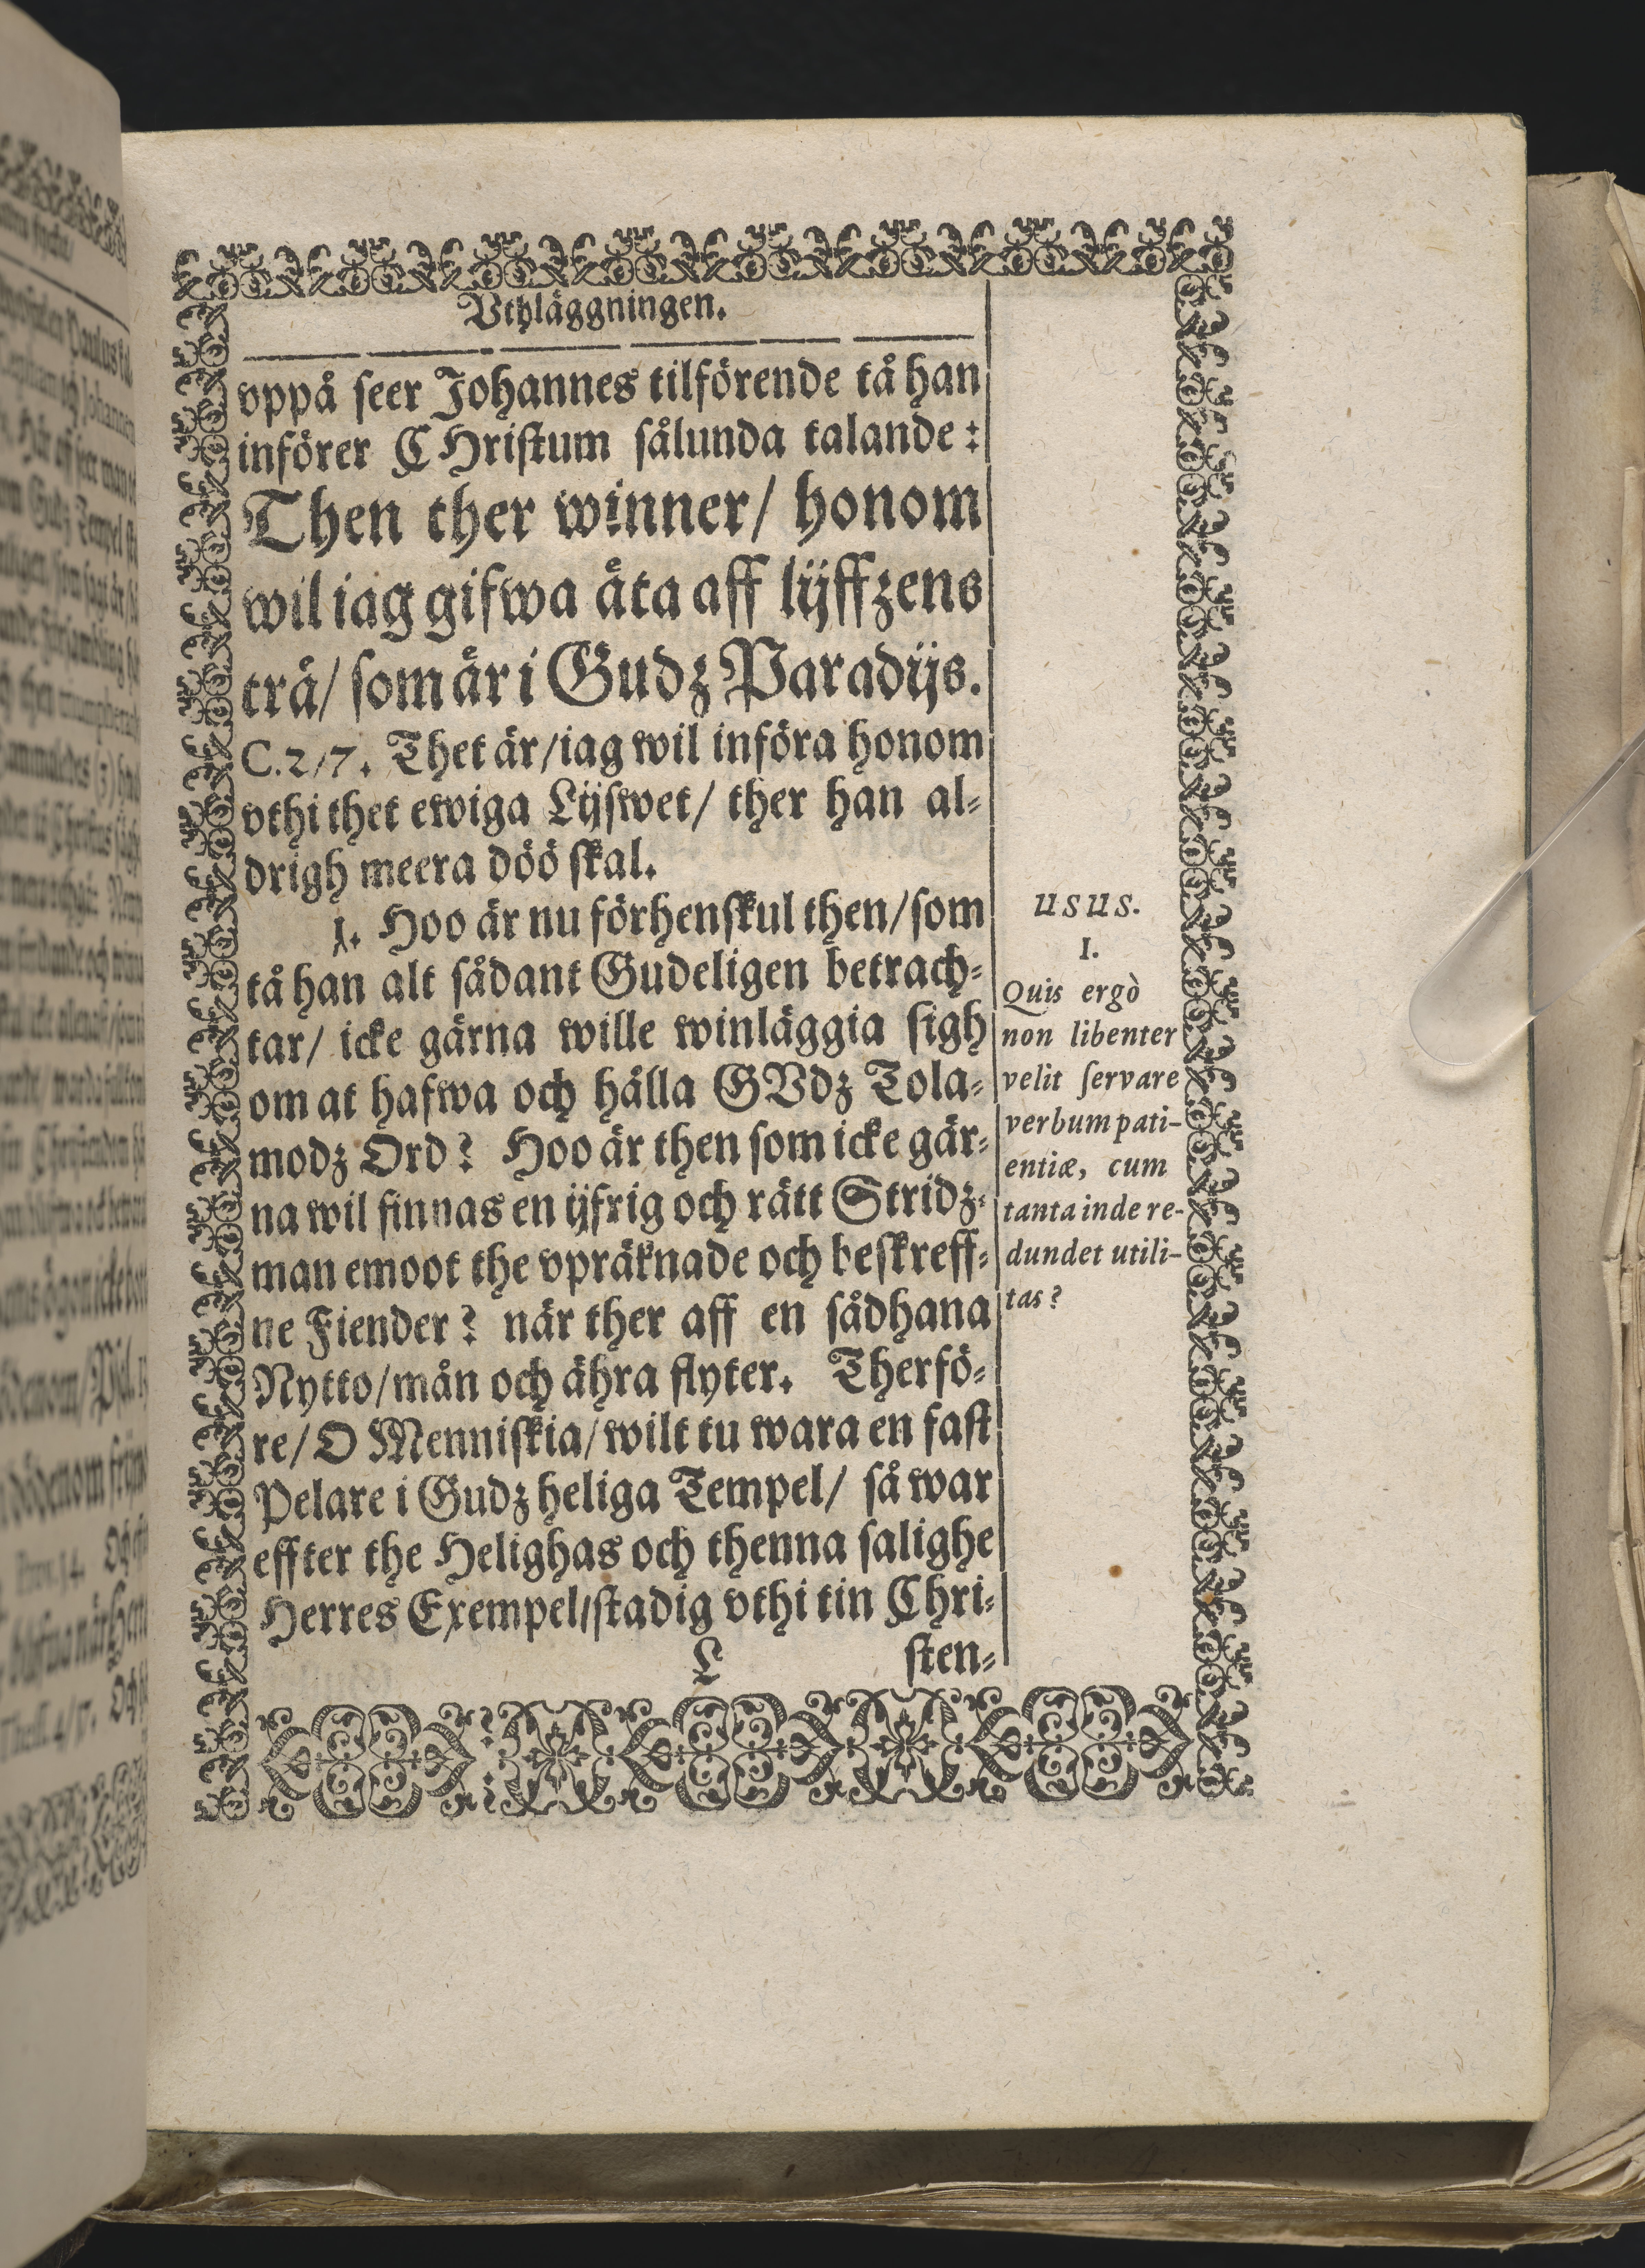 Vthläggningen.
vppå seer Johannes tilförende tå han
införer CHristum sålunda talande:
Then ther winner/ honom
wil iag gifwa äta aff lijffzens
trä/ som är i Gudz Paradijs.
C.2/7. Thet är/iag wil införa honom
vthi thet ewiga Lijfwet/ ther han al-
drigh meera döö skal.
1. Hoo är nu förhenskul then/som
tå han alt sådant Gudeligen betrach-
tar/ icke gärna wille winläggia sigh
om at hafwa och hålla GVdz Tola-
modz Ord? Hoo är then som icke gär-
na wil finnas en ijfrig och rätt Stridz-
man emoot the vpräknade och beskreff-
ne Fiender? när ther aff en sådhana
Nytto/mån och ähra flyter. Therfö-
re/ O Menniskia/wilt tu wara en fast
Pelare i Gudz heliga Tempel/ så war
effter the Helighas och thenna salighe
Herres Exempel/stadig vthi tin Chri-
L sten-
USUS.
I.
Quis ergò
non libenter
velit servare
verbum pati-
entiæ, cum
tanta inde re-
dundet utili-
tas?